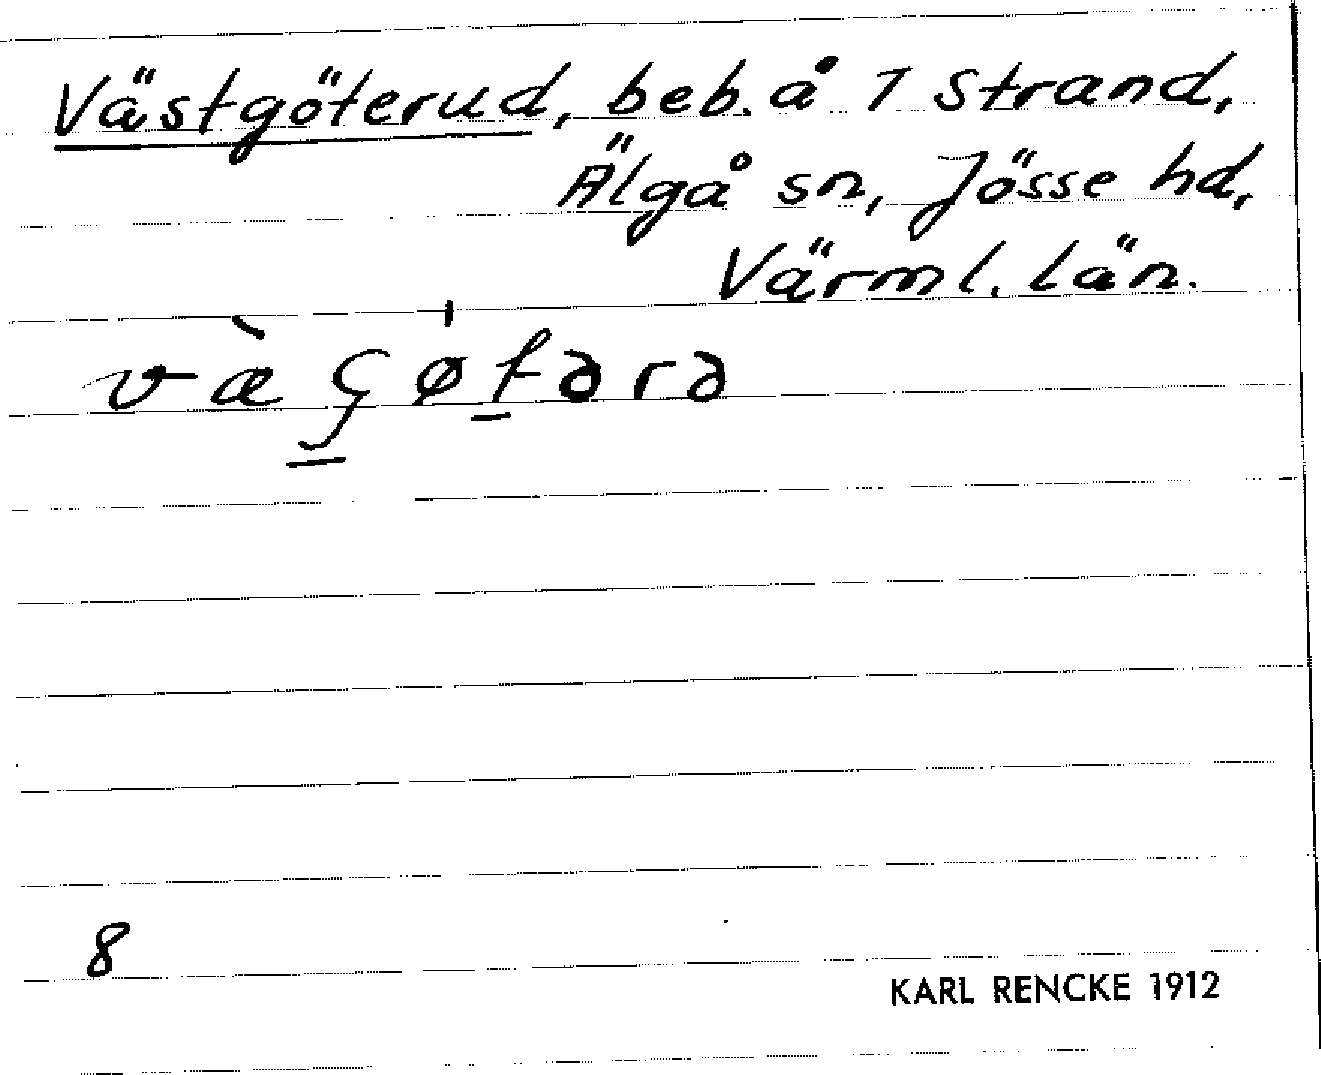 Västgöterud, beb. å 1 Strand,
Älgå sn, Jösse hd,
Värml. län.
væ̀ʂø̍tərə
8
KARL RENCKE 1912